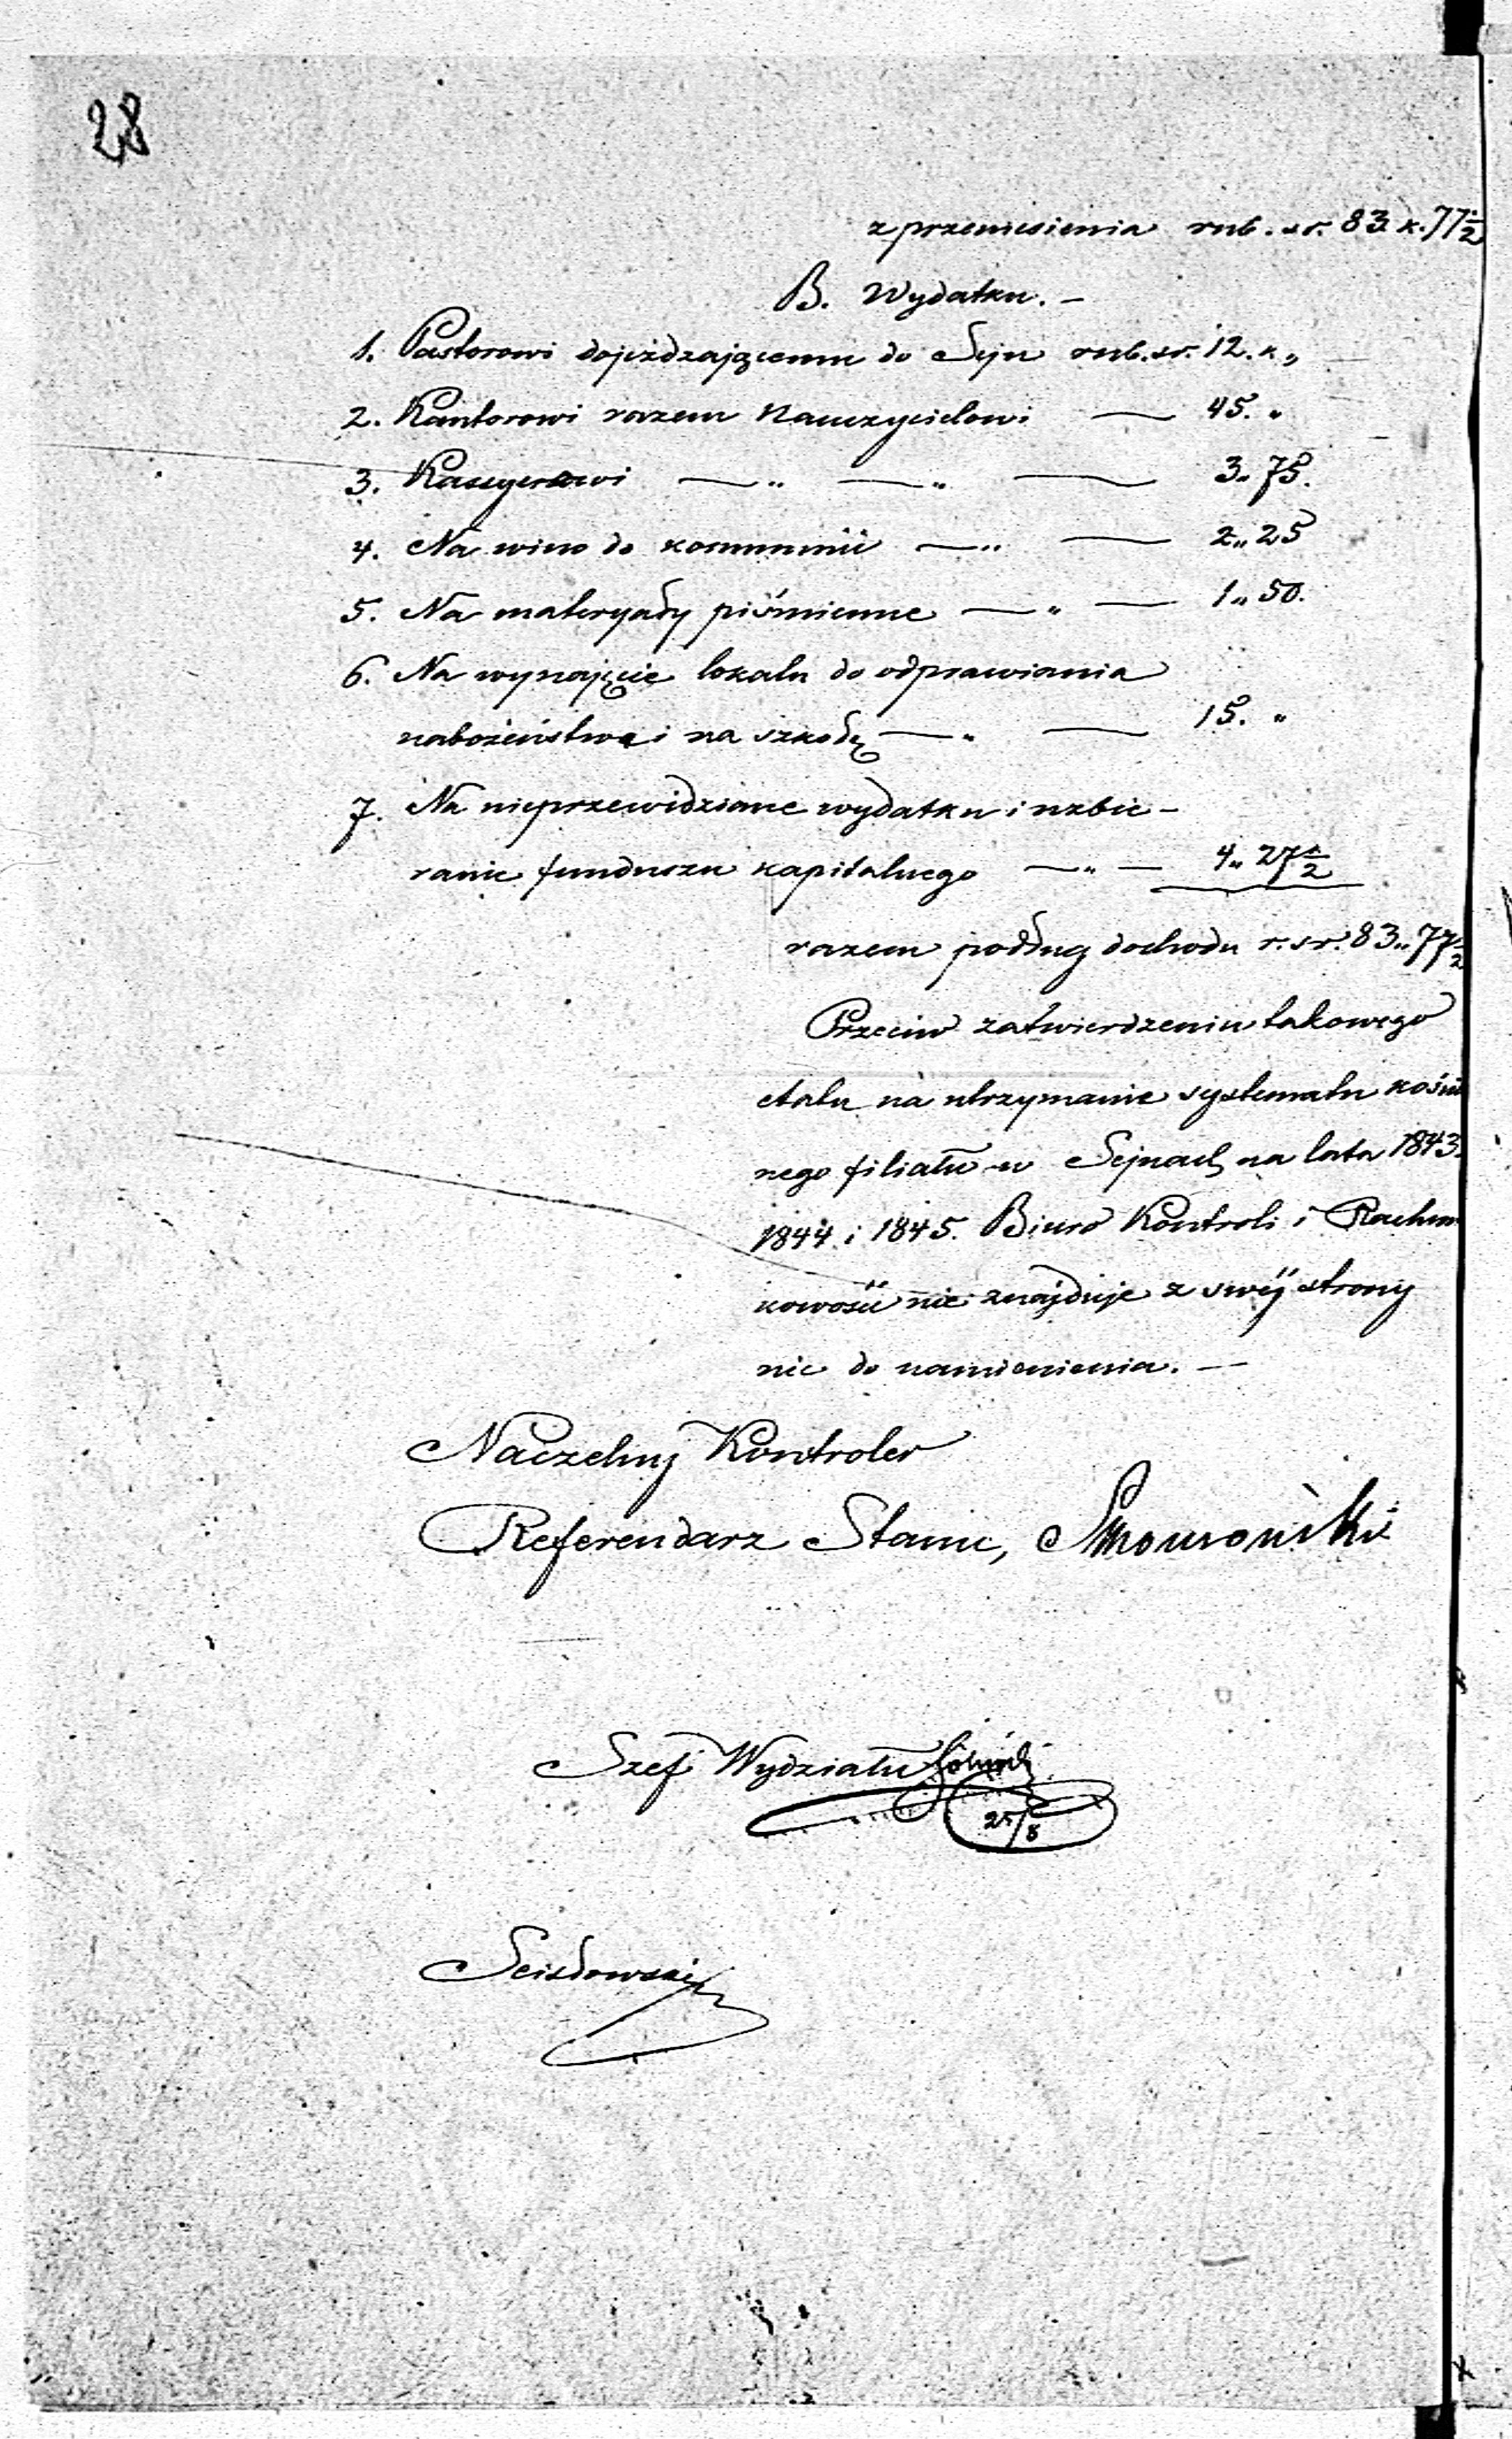 28
z przeniesienia rub. sr. 83. k. 77½
B. Wydatku. —
1. Pastorowi dojeżdzającemu do Sejn rub. sr. 12. k „
2. Kantorowi razem Nauczycielowi — 45. „
3. Kassyerowi — „ — „ — 3. 75.
4. Na wino do kommunii — „ — 2„ 25
5. Na materyały piśmienne — „ — 1„ 50.
6. Na wynajęcie lokalu do odprawiania
nabożeństwa i na szkołę — „ — 15. „
7. Na nieprzewidziane wydatku i uzbie-
ranie funduszu kapitalnego — „ — 4„ 27½
razem podług dochodu r. sr. 83„ 77½
Przeciw zatwierdzeniu takowego
etatu na utrzymanie systematu kości
nego filiału w Sejnach na lata 1843.
1844. i 1845. Biuro Kontroli i Rachun
kowości nie znajduje z swéj strony
nic do namienienia. —
Naczelny Kontroler
Referendarz Stanu,
Szef Wydziału
25/8